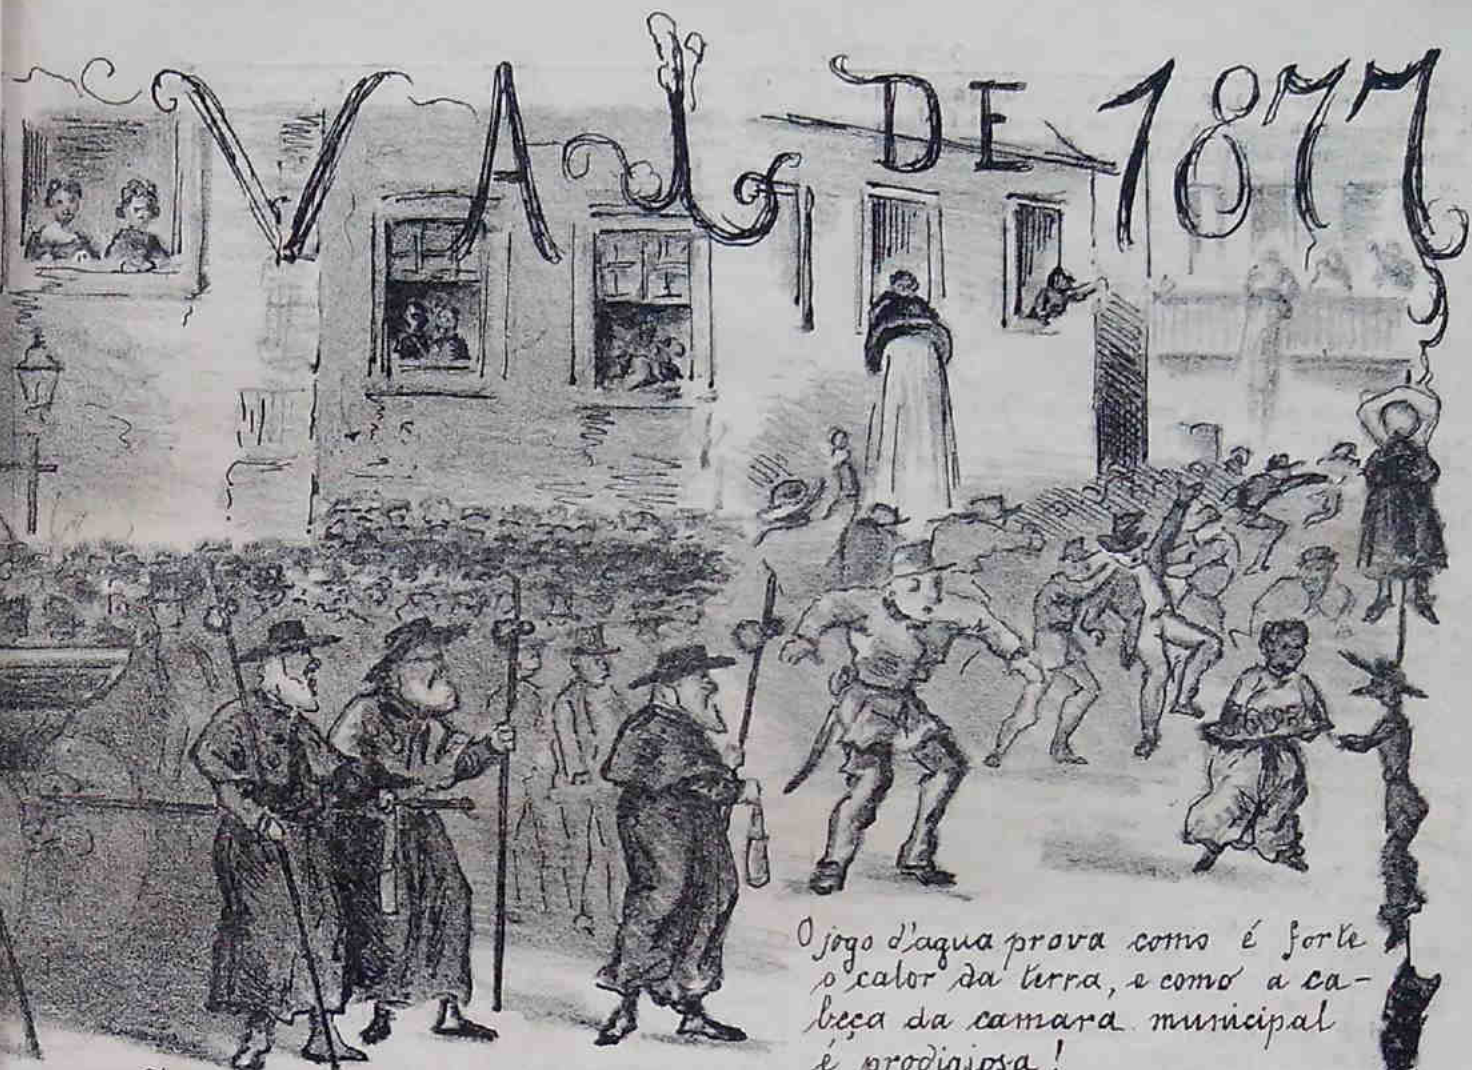 VAL DE 1877
O jogo d'agua prova como é forte
o calor da terra, e como a ca-
beça da camara municipal
é prodigiosa!